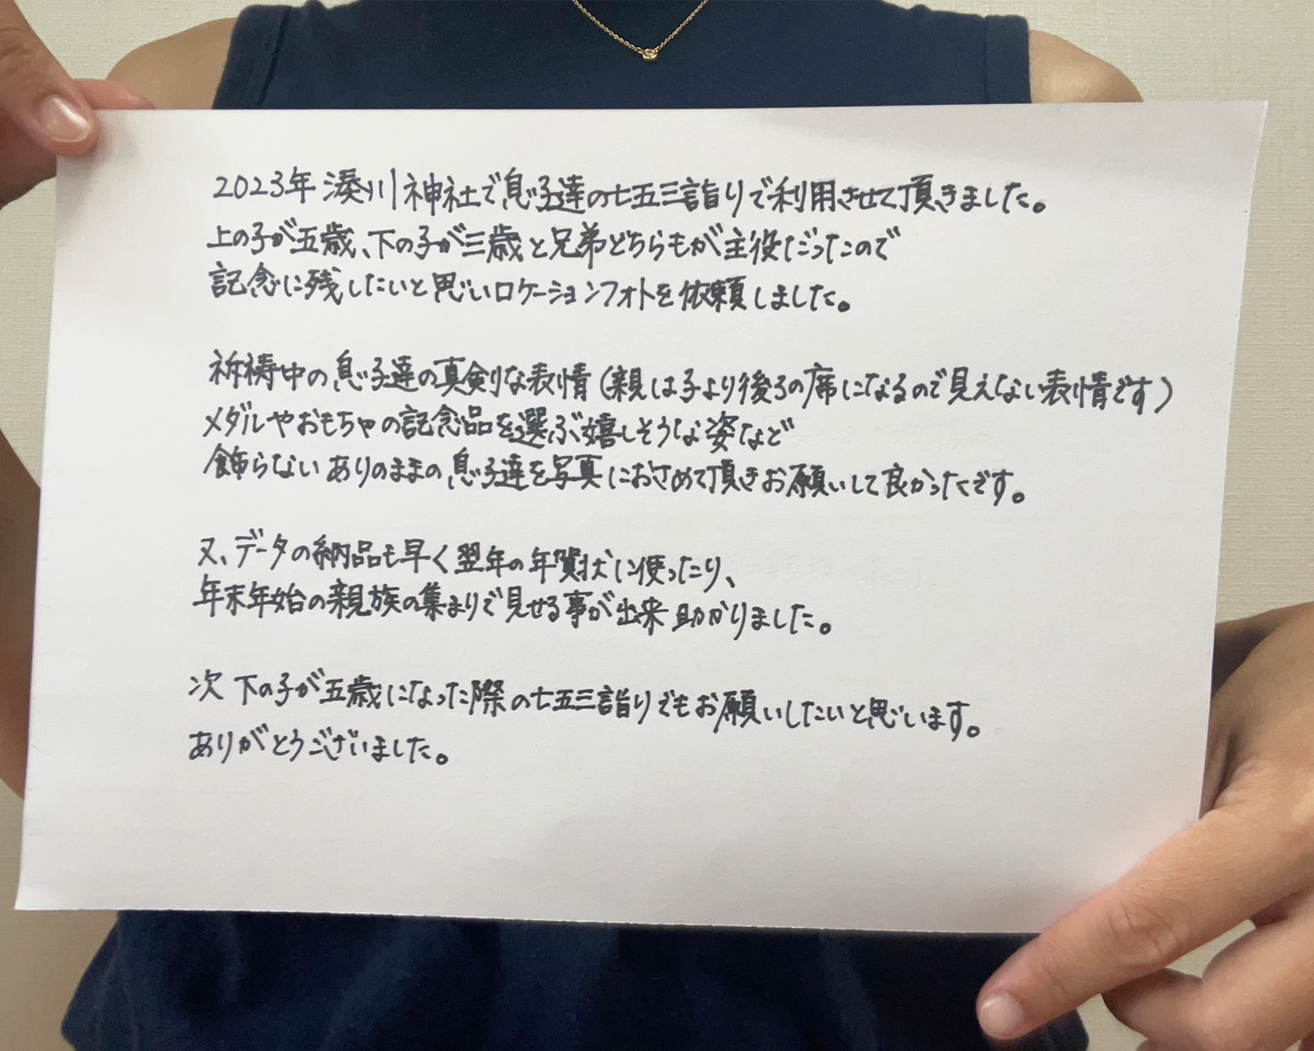 2023年 湊川神社で息子達の七五三詣りで利用させて頂きました。
上の子が五歳、下の子が三歳と兄弟どちらもが主役だったので
記念に残したいと思いロケーションフォトを依頼しました。
祈祷中の息子達の真剣な表情(親は子より後ろの席になるので見えない表情です)
メダルやおもちゃの記念品を選ぶ嬉しそうな姿など
飾らないありのままの息子達を写真におさめて頂きお願いして良かったです。
又、データの納品も早く翌年の年賀状に使ったり、
年末年始の親族の集まりで見せる事が出来助かりました。
次 下の子が五歳になった際の七五三詣りでもお願いしたいと思います。
ありがとうございました。